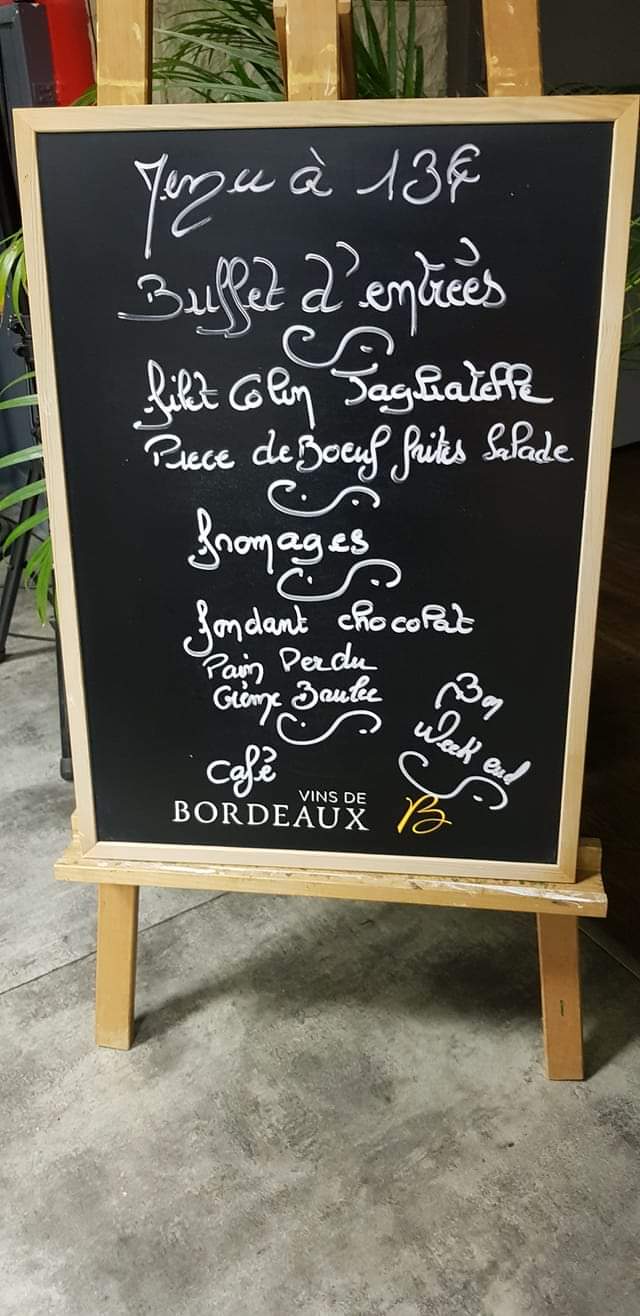 Menu à 13€
Buffet d'entrées
filet Colin Tagliatelle
Piece de Boeuf frites Salade
fromages
fondant chocolat
Pain Perdu
Crème Brulee
café
Bon
Week end
VINS DE
BORDEAUX B